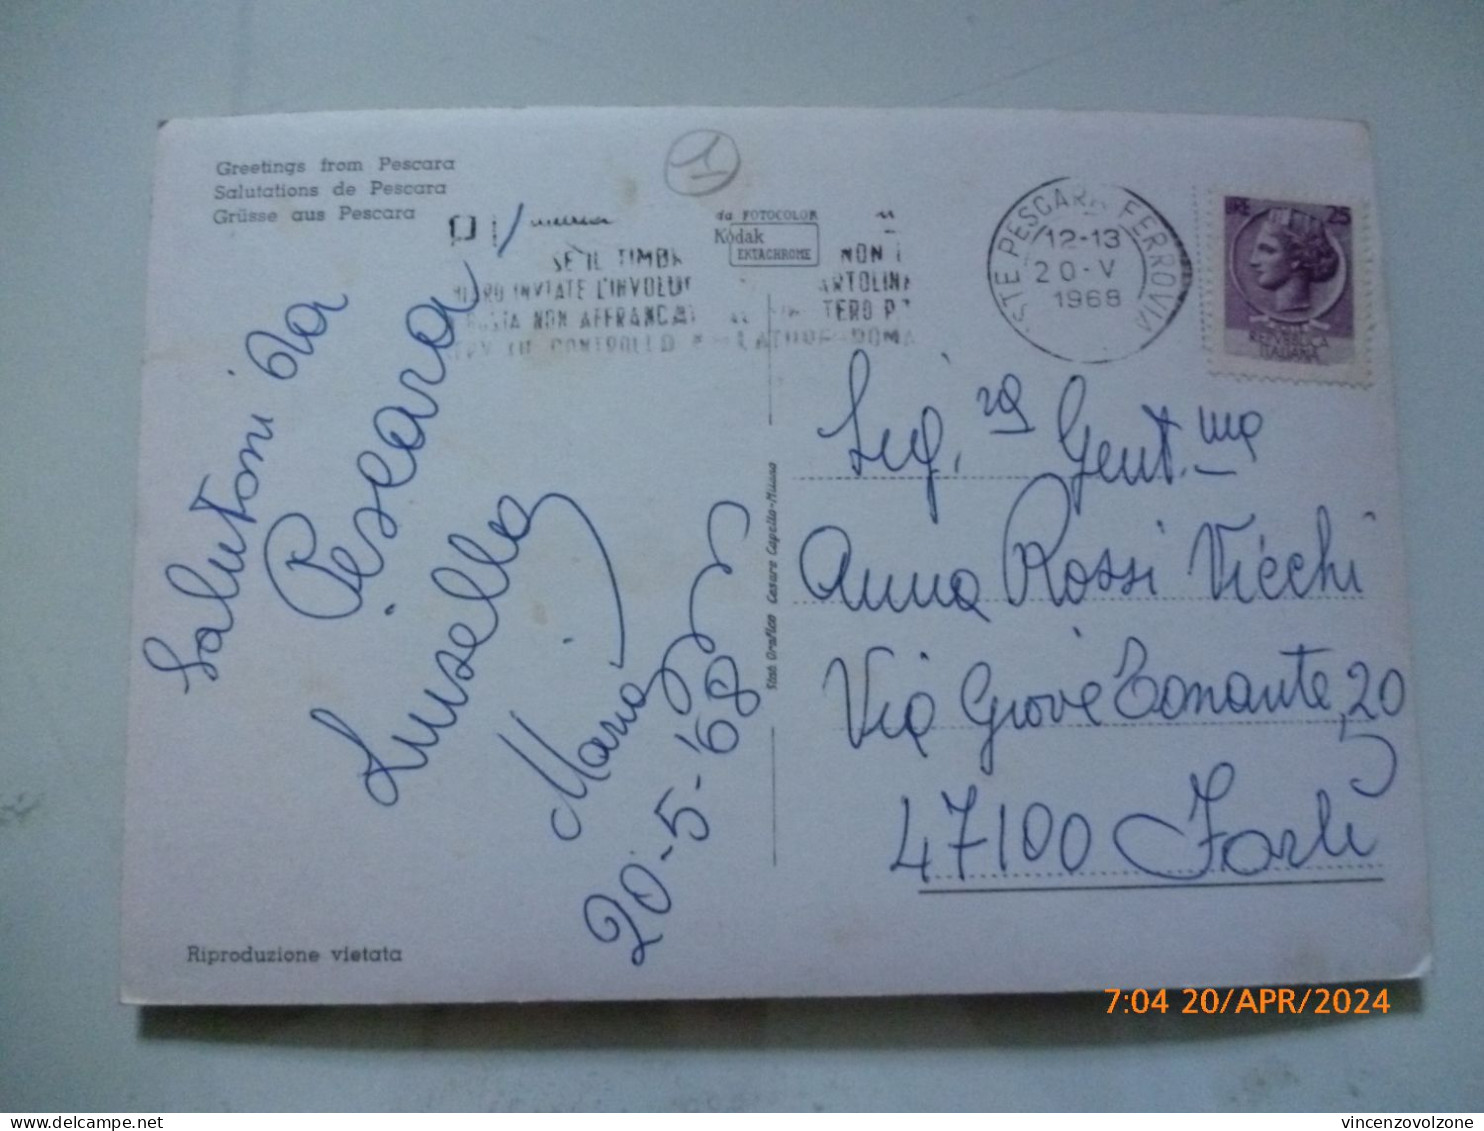 Greetings from Pescara
Salutations de Pescara
Grüsse aus Pescara
1
da FOTOCOLOR
Kodak
EKTACHROME
SE IL TIMBR NON
INVIATE L'INVOLU ARTOLINA
NON AFFRANCAT TERO P.T
CONTROLLO ROMA
STE PESCARA FERROVIA
12-13
20-V
1968
LIRE 25
REPVBBLICA
ITALIANA
Saluti da
Pescara
Luisella
Maria
20-5-'68
Stab. Grafico Cesare Capello-Milano
Gent.ma
Anna Rossi Vicchi
Via Giove Tonante, 20
47100 Forlì
Riproduzione vietata
7:04 20/APR/2024
delcampe.net
vincenzovolzone